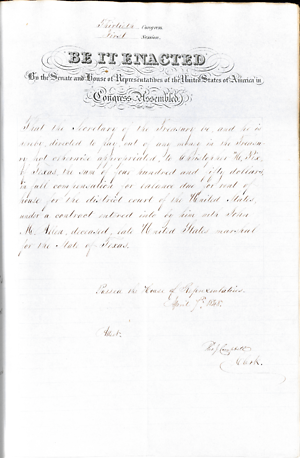 Thirtieth Congress
First Session
BE IT ENACTED
By the Senate and House of Representatives of the United States of America in
Congress Assembled
That the Secretary of the Treasury be, and he is
directed to pay, out of any money in the Treasury
not otherwise appropriated, to
of Texas, the sum of four hundred and fifty dollars,
in full compensation for balance due for rent of
house for the district court of the United States,
under a contract entered into by him with John
M. Allen, deceased, late United States marshal
for the State of Texas.
Passed the House of Representatives
April 7th, 1848.
Attest.
Clerk.